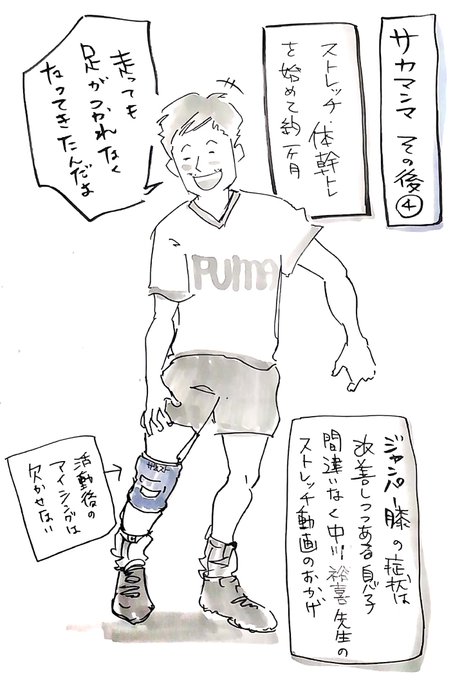 サカマシマ その後④
ストレッチ・体幹トレ
を始めて約一ヶ月
走っても
足がつかれなく
なってきたんだよ
PUMA
活動後の
アイシングは
欠かせない
ジャンパー膝の症状は
改善しつつある息子
間違いなく中川裕喜先生の
ストレッチ動画のおかげ